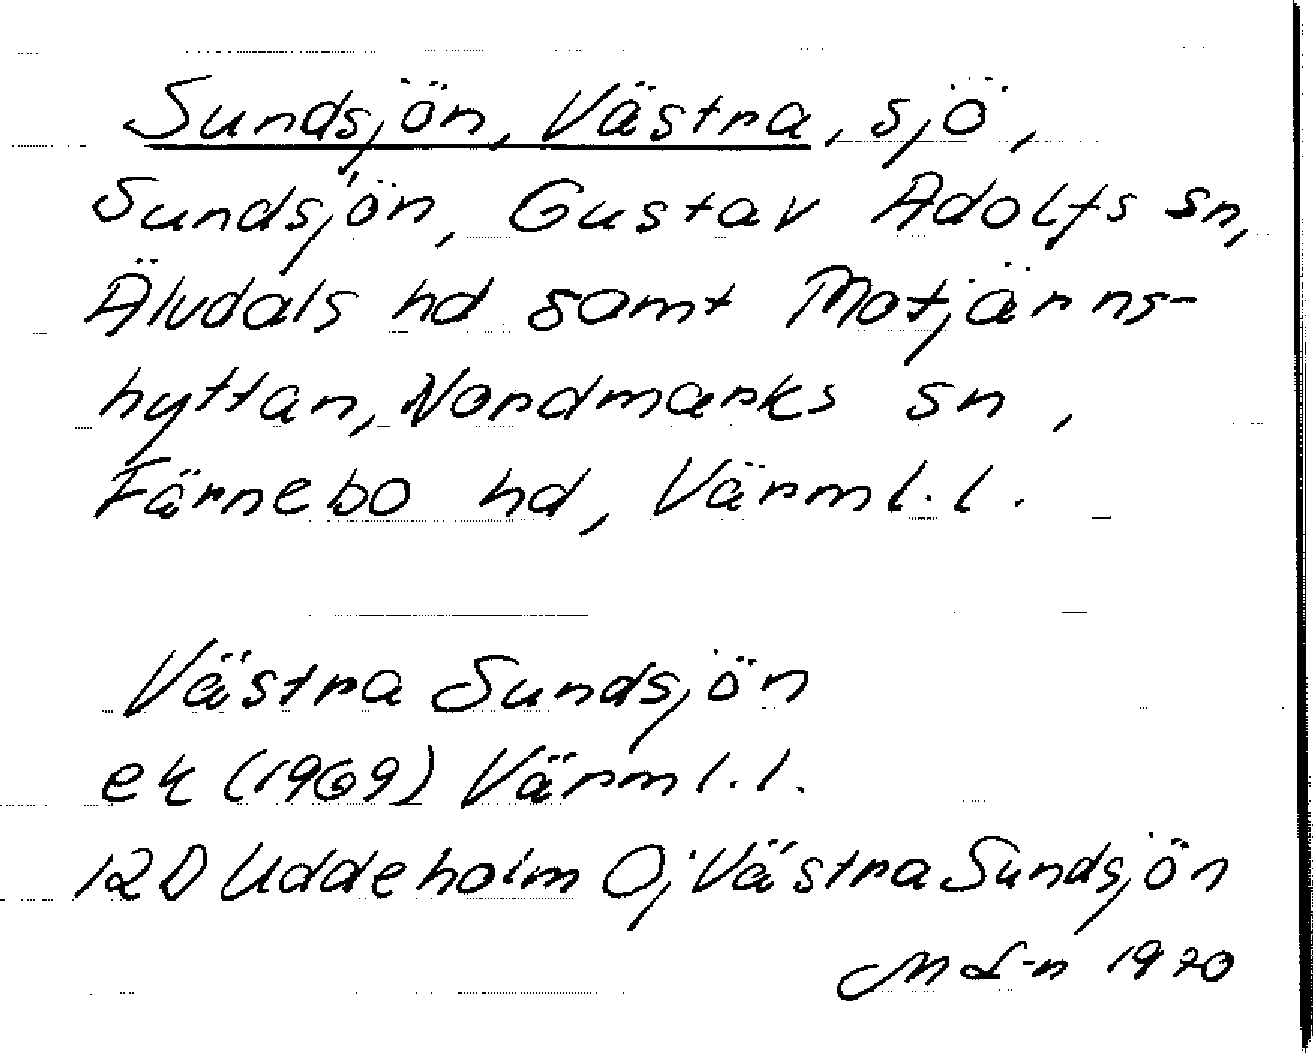 Sundsjön, Västra, sjö,
Sundsjön, Gustav Adolfs sn,
Älvdals hd samt Motjärns-
hyttan, Nordmarks sn,
Färnebo hd, Värml. l.
Västra Sundsjön
ek (1969) Värml. l.
12D Uddeholm Oj Västra Sundsjön
M L-n 1970